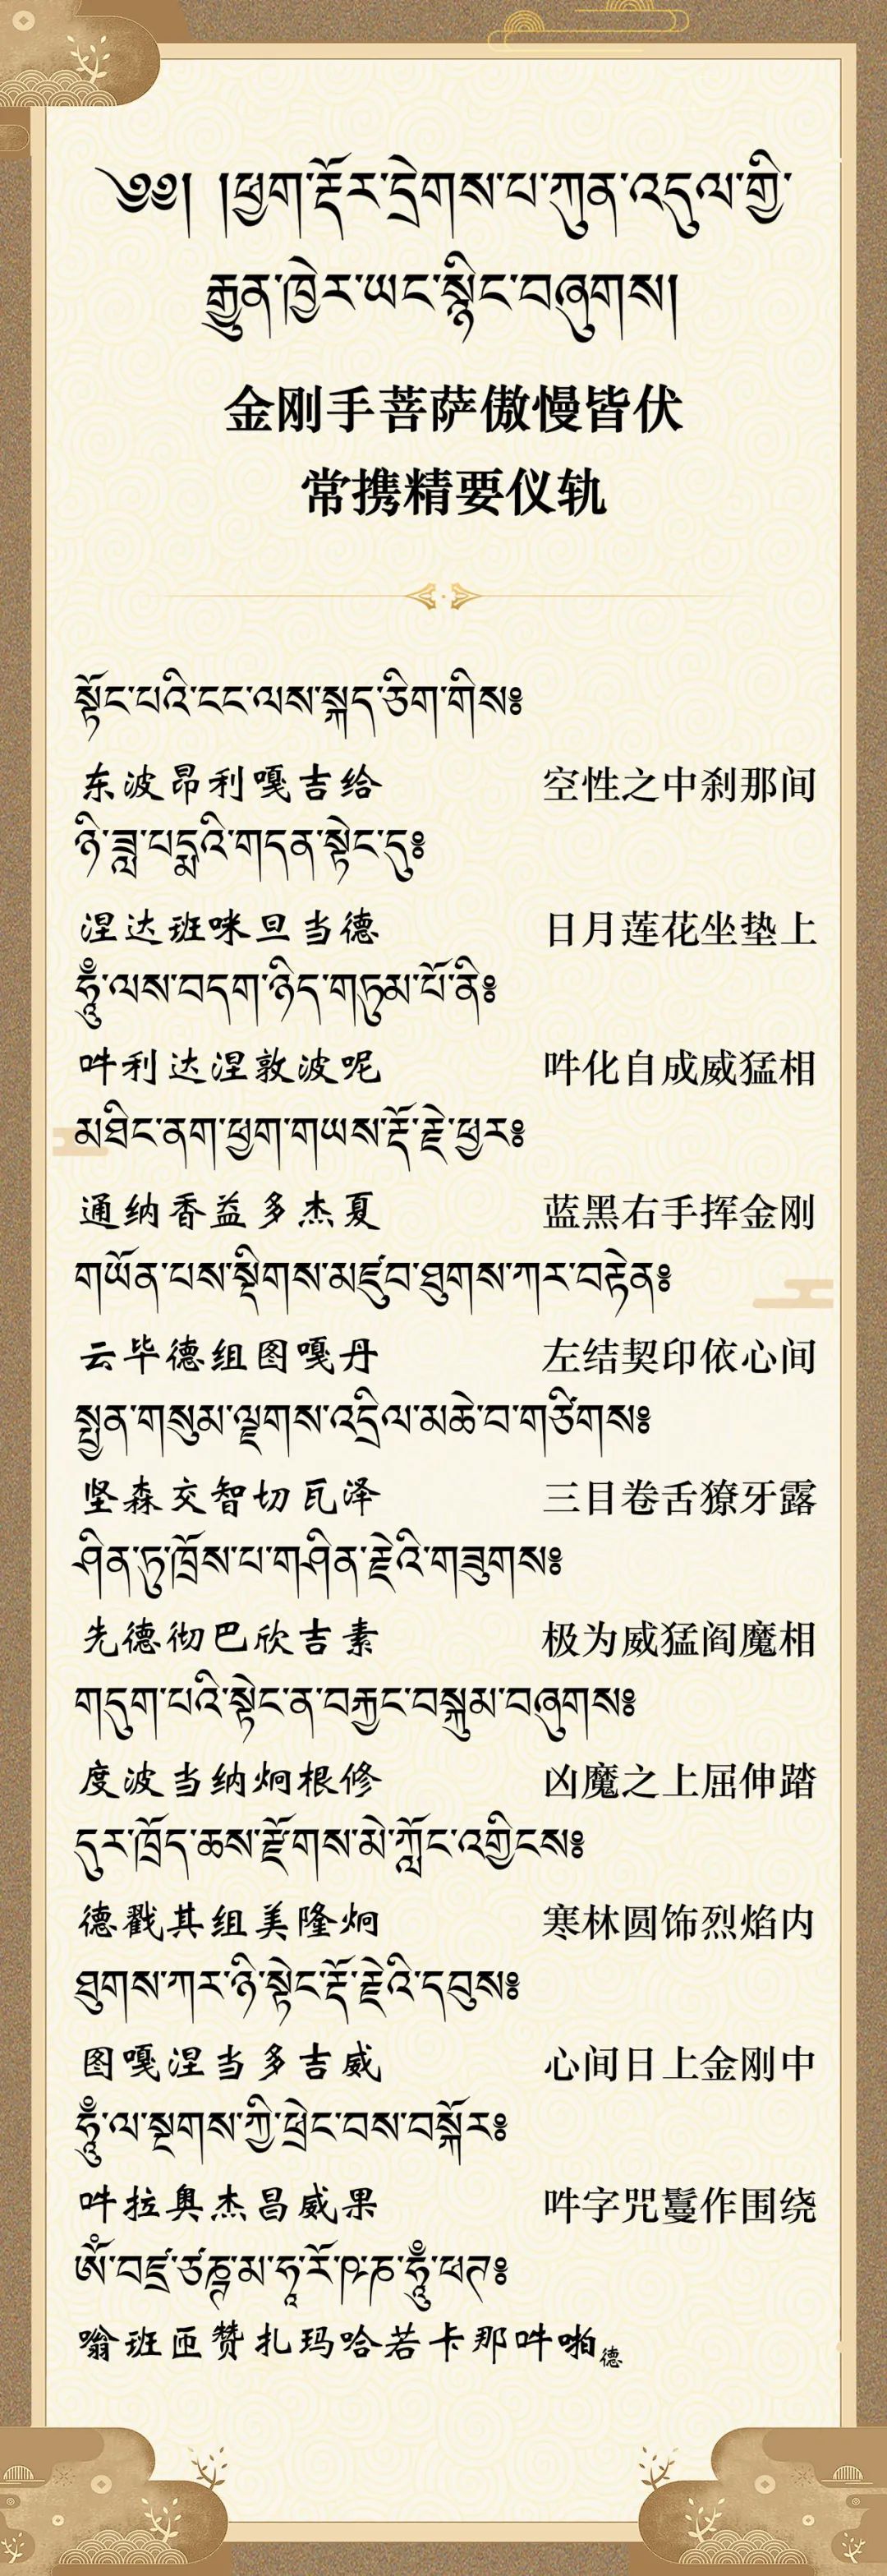 ༄༅། །ཕྱག་རྡོར་དྲེགས་པ་ཀུན་འདུལ་གྱི་
རྒྱུན་ཁྱེར་ཡང་སྙིང་བཞུགས།
金刚手菩萨傲慢皆伏
常携精要仪轨
སྟོང་པའི་ངང་ལས་སྐད་ཅིག་གིས༔
东波昂利嘎吉给 空性之中刹那间
ཉི་ཟླ་པདྨའི་གདན་སྟེང་དུ༔
涅达班咪旦当德 日月莲花坐垫上
ཧཱུྃ་ལས་བདག་ཉིད་གཏུམ་པོ་ནི༔
吽利达涅敦波呢 吽化自成威猛相
མཐིང་ནག་ཕྱག་གཡས་རྡོ་རྗེ་ཕྱར༔
通纳香益多杰夏 蓝黑右手挥金刚
གཡོན་པས་སྡིགས་མཛུབ་ཐུགས་ཀར་བརྟེན༔
云毕德组图嘎丹 左结契印依心间
སྤྱན་གསུམ་ལྗགས་འདྲིལ་མཆེ་བ་གཙིགས༔
坚森交智切瓦泽 三目卷舌獠牙露
ཤིན་ཏུ་ཁྲོས་པ་གཤིན་རྗེའི་གཟུགས༔
先德彻巴欣吉素 极为威猛阎魔相
གདུག་པའི་སྟེང་ན་བརྐྱང་བསྐུམ་བཞུགས༔
度波当纳炯根修 凶魔之上屈伸踏
དུར་ཁྲོད་ཆས་རྫོགས་མེ་ཀློང་འགྱིངས༔
德戳其组美隆炯 寒林圆饰烈焰内
ཐུགས་ཀར་ཉི་སྟེང་རྡོ་རྗེའི་དབུས༔
图嘎涅当多吉威 心间日上金刚中
ཧཱུྃ་ལ་སྔགས་ཀྱི་ཕྲེང་བས་བསྐོར༔
吽拉奥杰昌威果 吽字咒鬘作围绕
ཨོཾ་བཛྲ་ཙཎྜ་མ་ཧཱ་རོ་ཥ་ཎ་ཧཱུྃ་ཕཊ༔
嗡班匝赞扎玛哈若卡那吽啪德